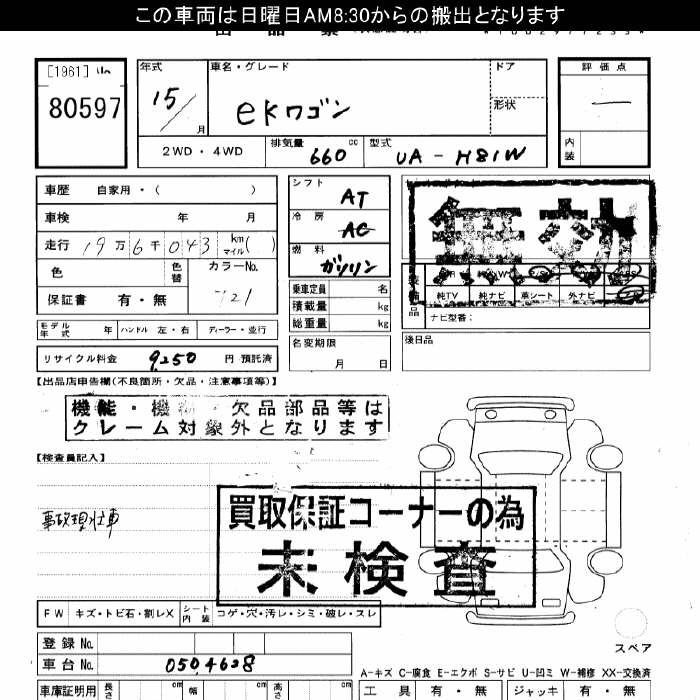 この車両は日曜日AM8:30からの搬出となります
[1961]
80597
年式
15/
月
車名・グレード
eKワゴン
ドア
形状
評価点
内装
2WD・4WD
排気量
660 cc
型式
UA-H81W
車歴 自家用・( )
車検 年 月
走行 19万6千043 km マイル( )
色
色替
カラーNo.
721
保証書 有・無
シフト
AT
冷房
AC
燃料
ガソリン
乗車定員 名
積載量 kg
総重量 kg
名変期限
月 日
無効
純TV 純ナビ 革シート 外ナビ
ナビ型番:
後日品
モデル年式 年 ハンドル 左・右 ディーラー・並行
リサイクル料金 9,250 円 預託済
【出品店申告欄(不良箇所・欠品・注意事項等)】
機能・機 ・欠品部品等は
クレーム対象外となります
【検査員記入】
事故現状車
買取保証コーナーの為
未検査
FW キズ・トビ石・割レX シート内装 コゲ・穴・汚レ・シミ・破レ・スレ
登録No.
車台No. 0504628
スペア
A-キズ C-腐食 E-エクボ S-サビ U-凹ミ W-補修 XX-交換済
車庫証明用 長さ cm 幅 cm 高さ cm
工具 有・無 ジャッキ 有・無